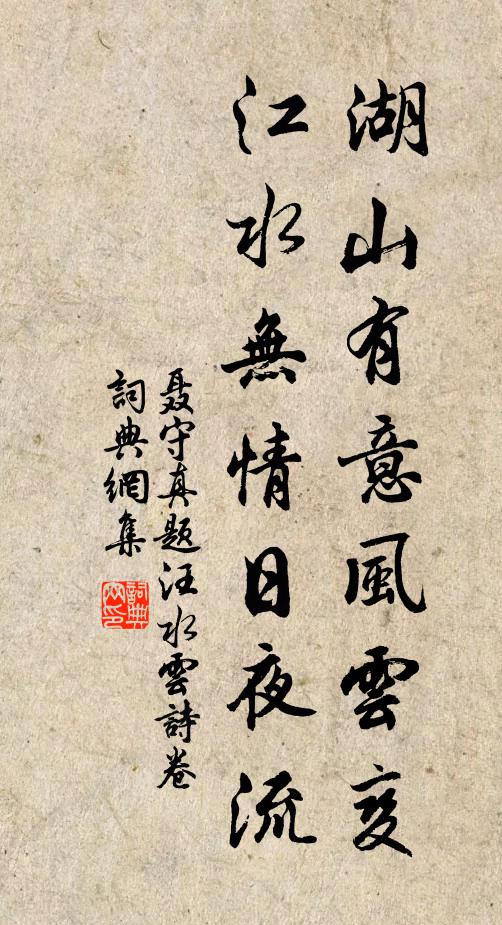 湖山有意風雲变
江水無情日夜流
聂守真题汪水雲詩卷
詞典網集
詞典网印